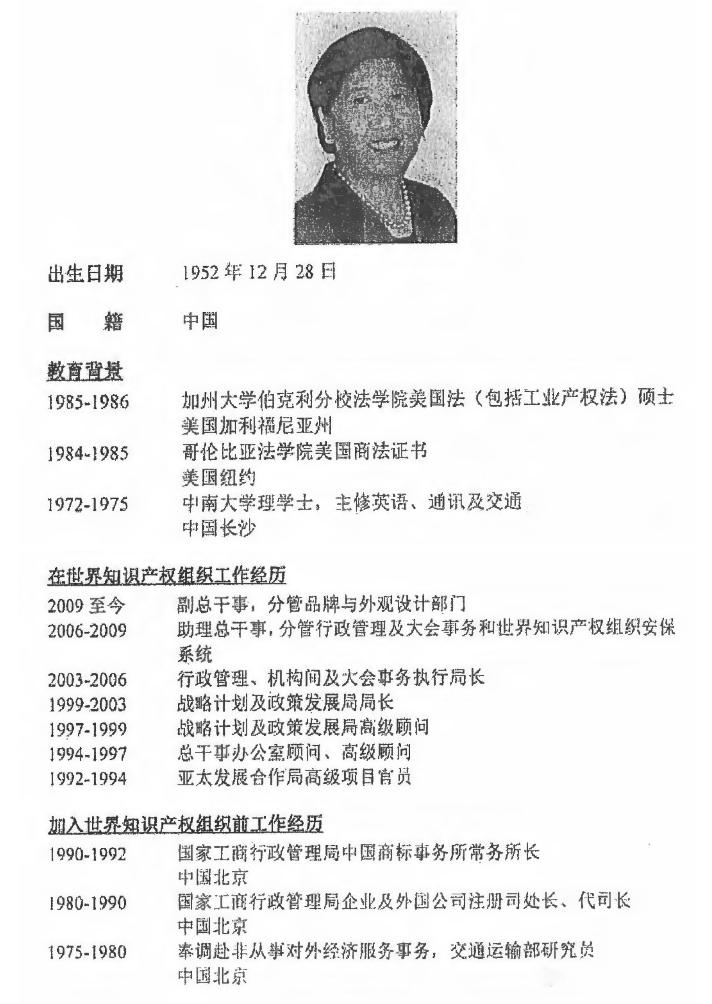 出生日期 1952 年 12 月 28 日
国 籍 中国
教育背景
1985-1986 加州大学伯克利分校法学院美国法（包括工业产权法）硕士
美国加利福尼亚州
1984-1985 哥伦比亚法学院美国商法证书
美国纽约
1972-1975 中南大学理学士，主修英语、通讯及交通
中国长沙
在世界知识产权组织工作经历
2009 至今 副总干事，分管品牌与外观设计部门
2006-2009 助理总干事，分管行政管理及大会事务和世界知识产权组织安保
系统
2003-2006 行政管理、机构间及大会事务执行局长
1999-2003 战略计划及政策发展局局长
1997-1999 战略计划及政策发展局高级顾问
1994-1997 总干事办公室顾问、高级顾问
1992-1994 亚太发展合作局高级项目官员
加入世界知识产权组织前工作经历
1990-1992 国家工商行政管理局中国商标事务所常务所长
中国北京
1980-1990 国家工商行政管理局企业及外国公司注册司处长、代司长
中国北京
1975-1980 奉调赴非从事对外经济服务事务，交通运输部研究员
中国北京